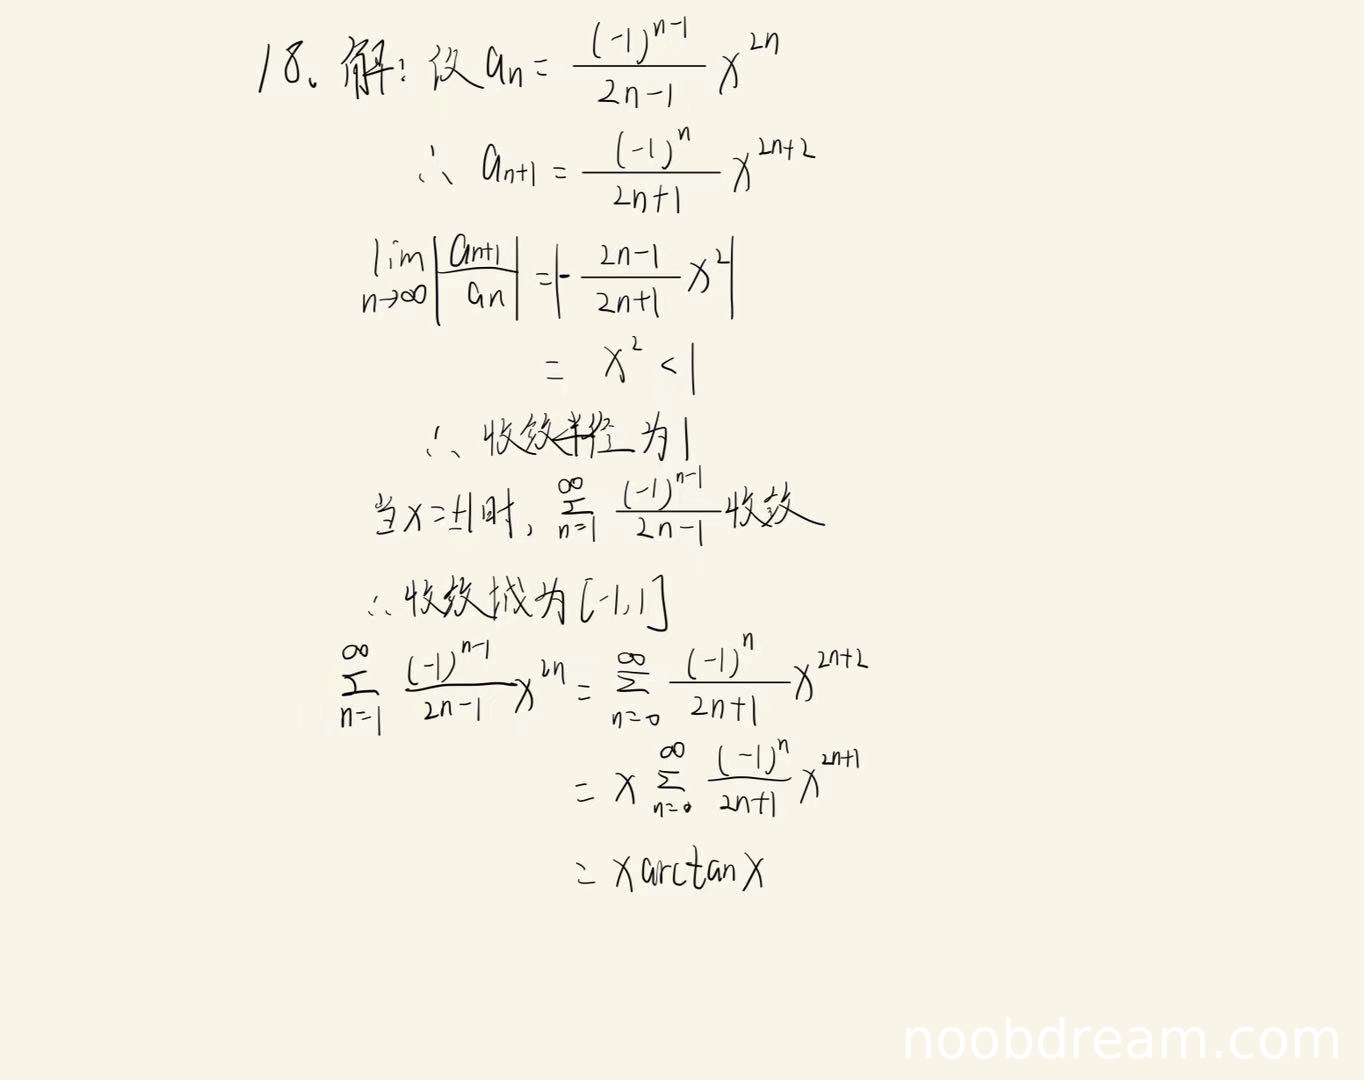 18、解：设 aₙ = (-1)^(n-1)/(2n-1) x^(2n)
∴ aₙ₊₁ = (-1)^n/(2n+1) x^(2n+2)
lim n→∞ |aₙ₊₁/aₙ| = |- (2n-1)/(2n+1) x²|
= x² < 1
∴ 收敛半径为1
当x=±1时, ∑_(n=1)^∞ (-1)^(n-1)/(2n-1) 收敛
∴收敛域为[-1,1]
∑_(n=1)^∞ (-1)^(n-1)/(2n-1) x^(2n) = ∑_(n=0)^∞ (-1)^n/(2n+1) x^(2n+2)
= x ∑_(n=0)^∞ (-1)^n/(2n+1) x^(2n+1)
= x arctan x
noobdream.com